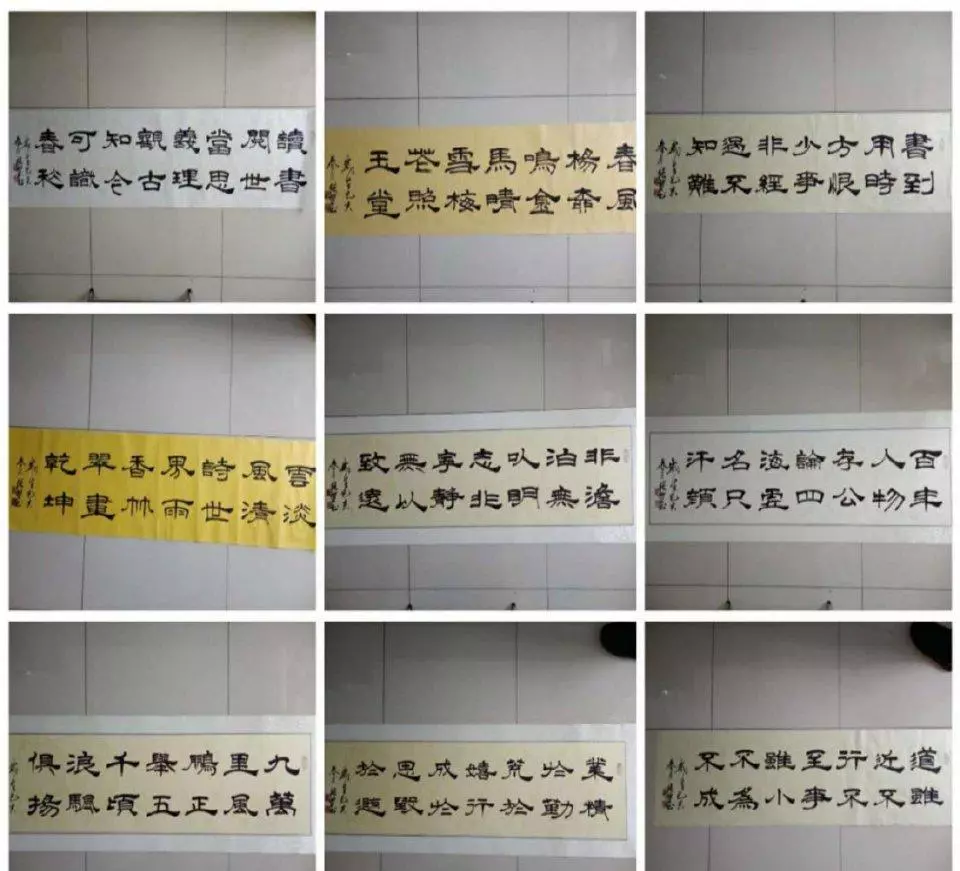 讀書
閱世
當思
義理
觀古
知今
可識
春秋
春風
楊柳
鳴金
馬晴
雪梅
花照
玉堂
書到
用時
方恨
少事
非經
過不
知難
雲淡
風清
詩世
界雨
香竹
翠畫
乾坤
非澹
泊無
以明
志非
寧靜
無以
致遠
百年
人物
存公
論四
海虛
名只
汗顏
九萬
里風
鵬正
舉五
千頃
浪颿
俱揚
業精
於勤
荒於
嬉行
成於
思毀
於隨
道雖
近不
行不
至事
雖小
不為
不成